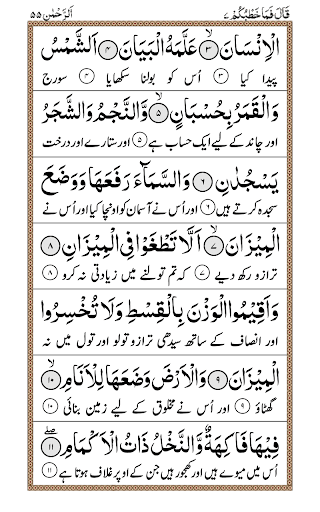 قَالَ فَمَا خَطْبُكُمْ ٢٧ اَلرَّحْمٰن ٥٥
الْاِنْسَانَ ۙ﴿٣﴾ عَلَّمَهُ الْبَيَانَ ﴿٤﴾ اَلشَّمْسُ
پیدا کیا ﴿٣﴾ اُس کو بولنا سکھایا ﴿٤﴾ سورج
وَالْقَمَرُ بِحُسْبَانٍ ﴿٥﴾ وَّالنَّجْمُ وَالشَّجَرُ
اور چاند کے لیے ایک حساب ہے ﴿٥﴾ اور ستارے اور درخت
يَسْجُدٰنِ ﴿٦﴾ وَالسَّمَآءَ رَفَعَهَا وَوَضَعَ
سجدہ کرتے ہیں ﴿٦﴾ اور اُس نے آسمان کو اونچا کیا اور اُس نے
الْمِيْزَانَ ۙ﴿٧﴾ اَلَّا تَطْغَوْا فِي الْمِيْزَانِ ﴿٨﴾
ترازو رکھ دیے ﴿٧﴾ کہ تم تولنے میں زیادتی نہ کرو ﴿٨﴾
وَاَقِيْمُوا الْوَزْنَ بِالْقِسْطِ وَلَا تُخْسِرُوا
اور انصاف کے ساتھ سیدھی ترازو تولو اور تول میں نہ
الْمِيْزَانَ ﴿٩﴾ وَالْاَرْضَ وَضَعَهَا لِلْاَنَامِ ۙ﴿١٠﴾
گھٹاؤ ﴿٩﴾ اور اُس نے مخلوق کے لیے زمین بنائی ﴿١٠﴾
فِيْهَا فَاكِهَةٌ وَّالنَّخْلُ ذَاتُ الْاَكْمَامِ ۖ﴿١١﴾
اُس میں میوے ہیں اور کھجور ہیں جن کے اوپر غلاف ہوتا ہے ﴿١١﴾